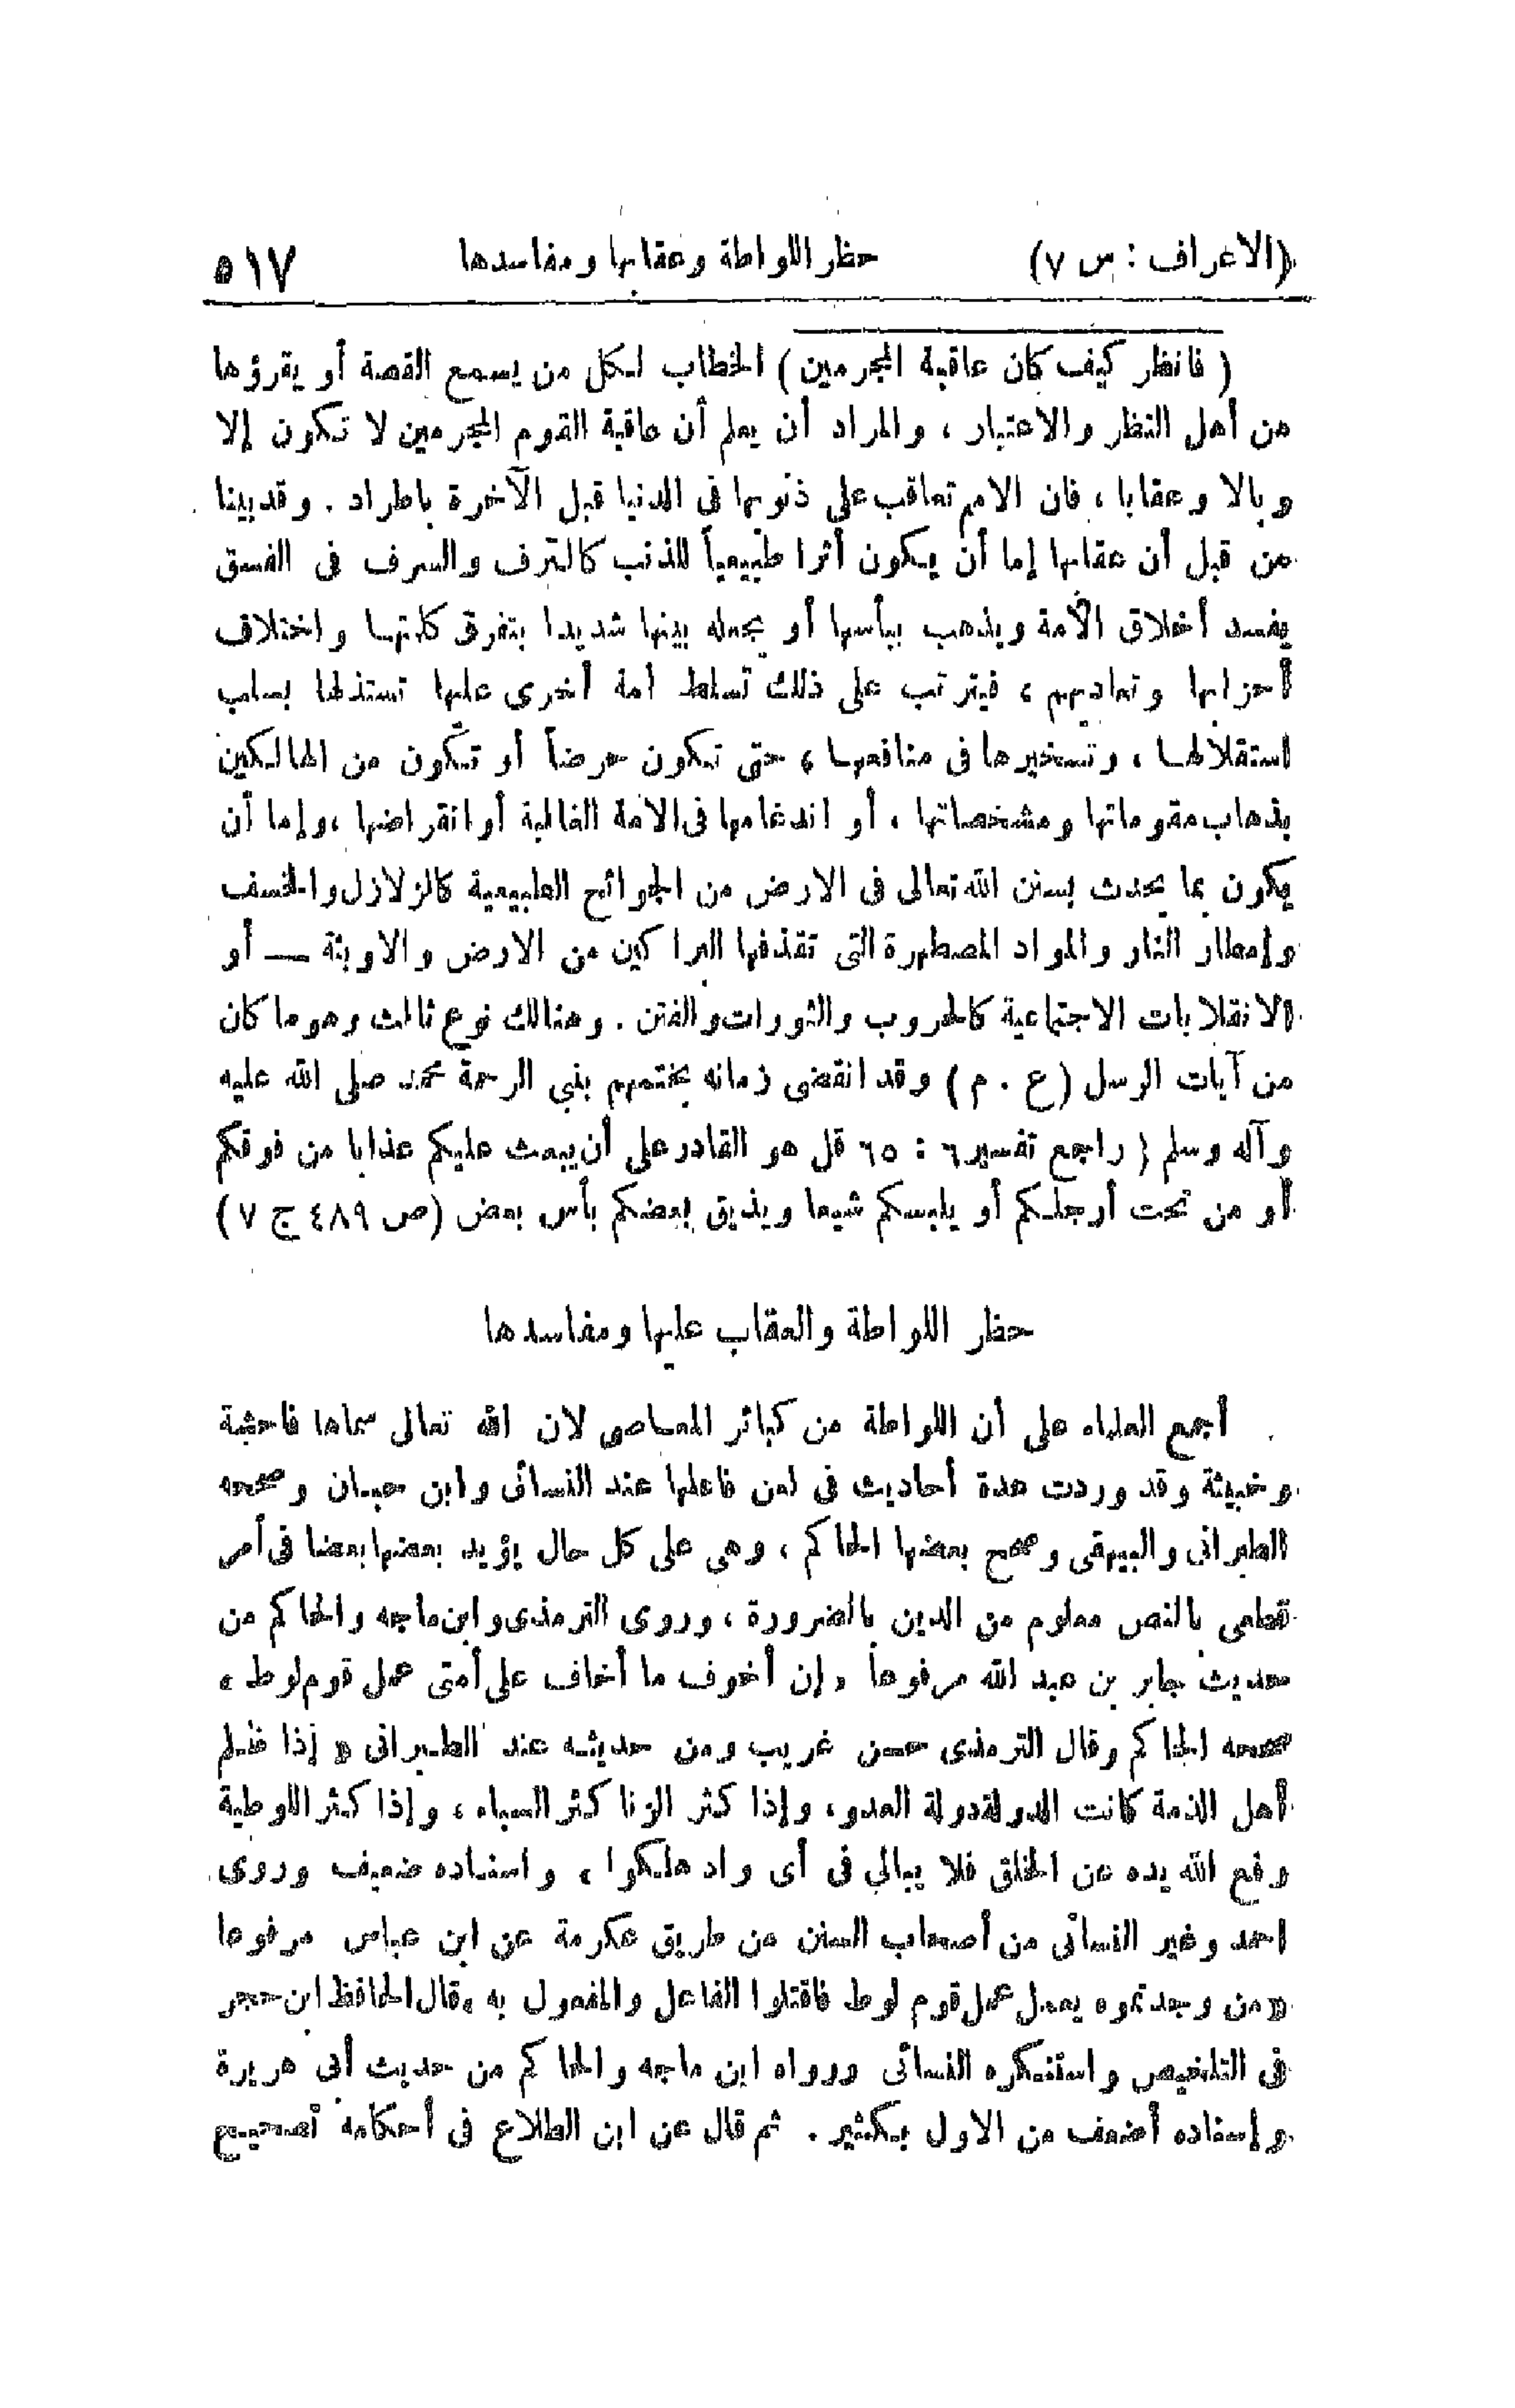 (الاعراف : س ٧) حظر اللواطة وعقابها ومفاسدها ٥١٧
( فانظر كيف كان عاقبة المجرمين ) الخطاب لكل من يسمع القصة أو يقرؤها
من أهل النظر والاعتبار ، والمراد أن يعلم أن عاقبة القوم المجرمين لا تكون إلا
وبالا وعقابا ، فان الامم تعاقب على ذنوبها فى الدنيا قبل الآخرة باطراد . وقد بينا
من قبل أن عقابها إما أن يكون أثرا طبيعياً للذنب كالترف والسرف فى الفسق
يفسد أخلاق الامة ويذهب ببأسها أو يجعله بينها شديدا بتفرق كلمتها واختلاف
أحزابها وتعاديهم ، فيترتب على ذلك تسلط أمة أخرى عليها تستذلها بسلب
استقلالها ، وتسخيرها فى منافعها ، حتى تكون حرضاً أو تكون من الهالكين
بذهاب مقوماتها ومشخصاتها ، أو اندغامها فى الامة الغالبة أو انقراضها ، وإما أن
يكون بما يحدث بسنن الله تعالى فى الارض من الجوائح الطبيعية كالزلازل والخسف
وإمطار النار والمواد المصطهرة التى تقذفها البراكين من الارض والاوبئة — أو
الانقلابات الاجتماعية كالحروب والثورات والفتن . وهنالك نوع ثالث وهو ما كان
من آيات الرسل (ع . م ) وقد انقضى زمانه بختمهم بنبي الرحمة محمد صلى الله عليه
وآله وسلم ( راجع تفسير ٦ : ٦٥ قل هو القادر على أن يبعث عليكم عذابا من فوقكم
أو من تحت أرجلكم أو يلبسكم شيعا ويذيق بعضكم بأس بعض (ص ٤٨٩ ج ٧ )
حظر اللواطة والعقاب عليها ومفاسدها
أجمع العلماء على أن اللواطة من كبائر المعاصى لان الله تعالى سماها فاحشة
وخبيثة وقد وردت عدة أحاديث فى لعن فاعلها عند النسائى وابن حبان وصححه
الطبرانى والبيهقى وصحح بعضها الحاكم ، وهى على كل حال يؤيد بعضها بعضا فى أمر
قطعى بالنص معلوم من الدين بالضرورة ، وروى الترمذى وابن ماجه والحاكم من
حديث جابر بن عبد الله مرفوعا « إن أخوف ما أخاف على أمتى عمل قوم لوط »
صححه الحاكم وقال الترمذى حسن غريب ومن حديثه عند الطبرانى « إذا ظلم
أهل الذمة كانت الدولة دولة العدو ، وإذا كثر الزنا كثر السباء ، وإذا كثر اللوطية
رفع الله يده عن الخلق فلا يبالي فى أى واد هلكوا ، واسناده ضعيف وروى
احمد وغير النسائى من أصحاب السنن من طريق عكرمة عن ابن عباس مرفوعا
« من وجدتموه يعمل عمل قوم لوط فاقتلوا الفاعل والمفعول به » قال الحافظ ابن حجر
فى التلخيص واستنكره النسائى ورواه ابن ماجه والحاكم من حديث أبى هريرة
وإسناده أضعف من الاول بكثير . ثم قال عن ابن الطلاع فى أحكامه تصحيح